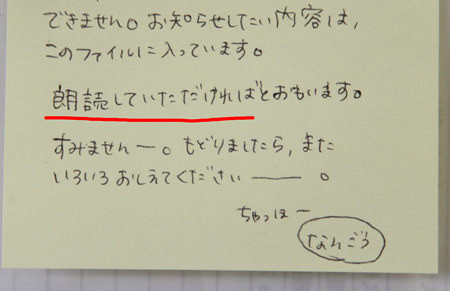 できません。お知らせしたい内容は，
このファイルに入っています。
朗読していただければとおもいます。
すみませんー。もどりましたら，また
いろいろおしえてください——。
ちゃっほー
なんごう